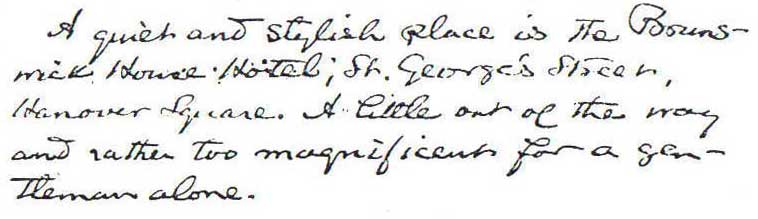 A quiet and stylish place is the Bruns-
wick House Hotel, St. George's Street,
Hanover Square. A little out of the way
and rather too magnificent for a gen-
tleman alone.